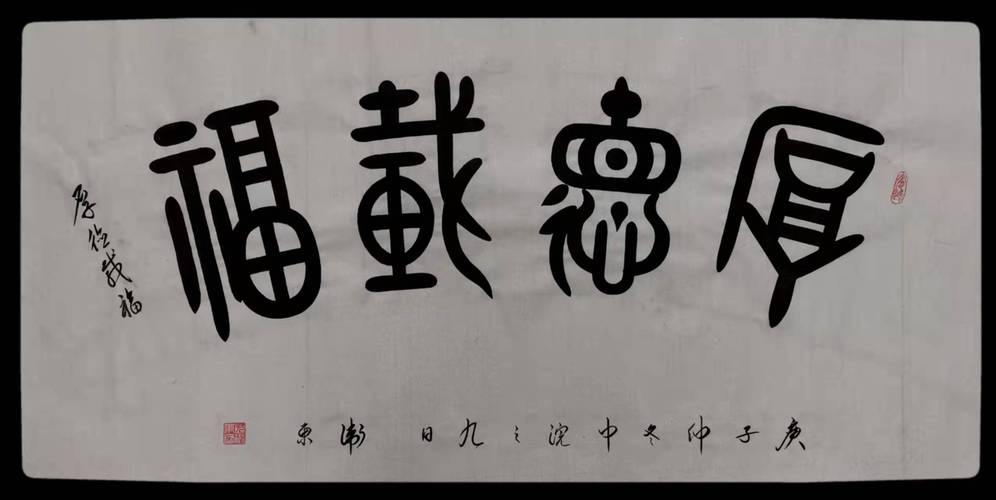 厚德載福
厚德载福
庚子仲冬中浣之九日 衛東